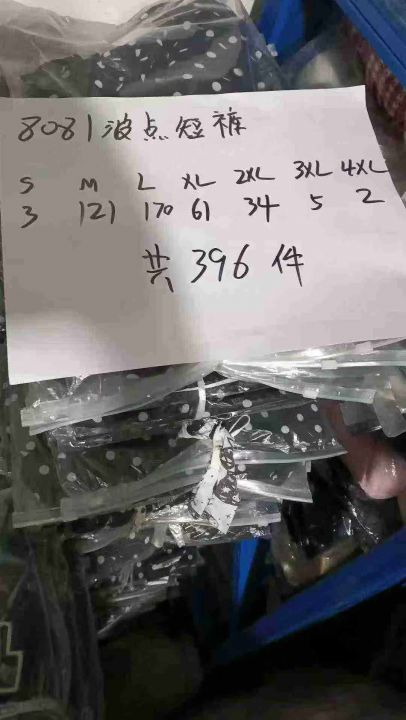 8081波点短裤
S M L XL 2XL 3XL 4XL
3 121 170 61 34 5 2
共396件